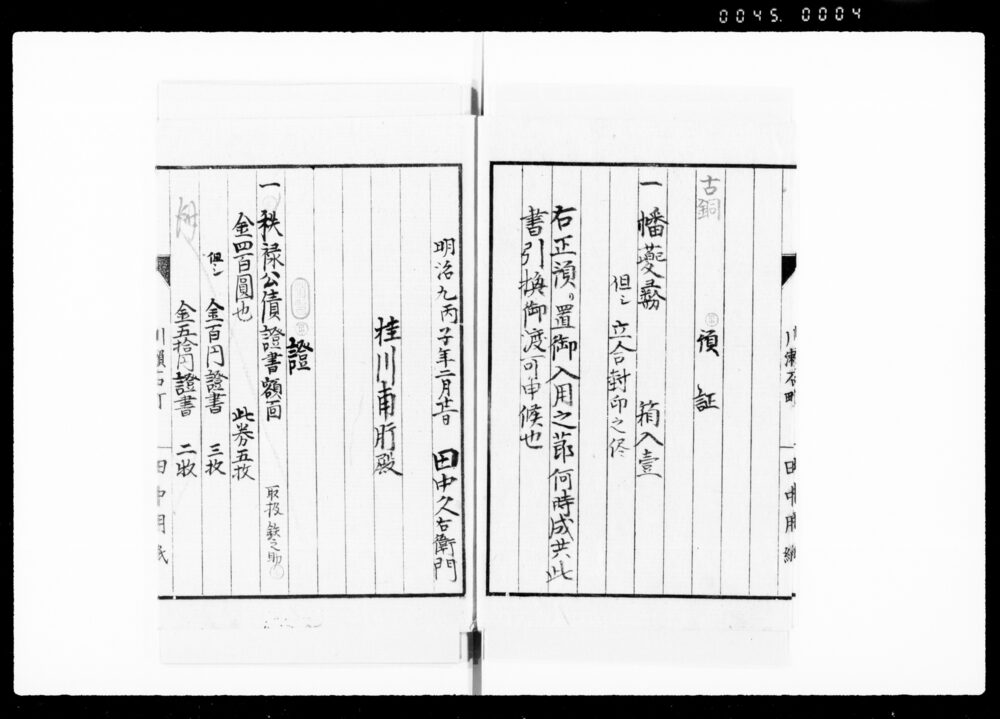 0045. 0004
古銅
預証
一幡夔彝 箱入壹
但シ立合封印之侭
右正預リ置御入用之節何時成共此
書引換御渡可申候也
明治九丙子年二月廿日 田中久右衛門
桂川甫所殿
證
一秩禄公債證書額面 取扱
金四百圓也 此券五枚
但シ金百円證書 三枚
金五拾円證書 二枚
田中用紙